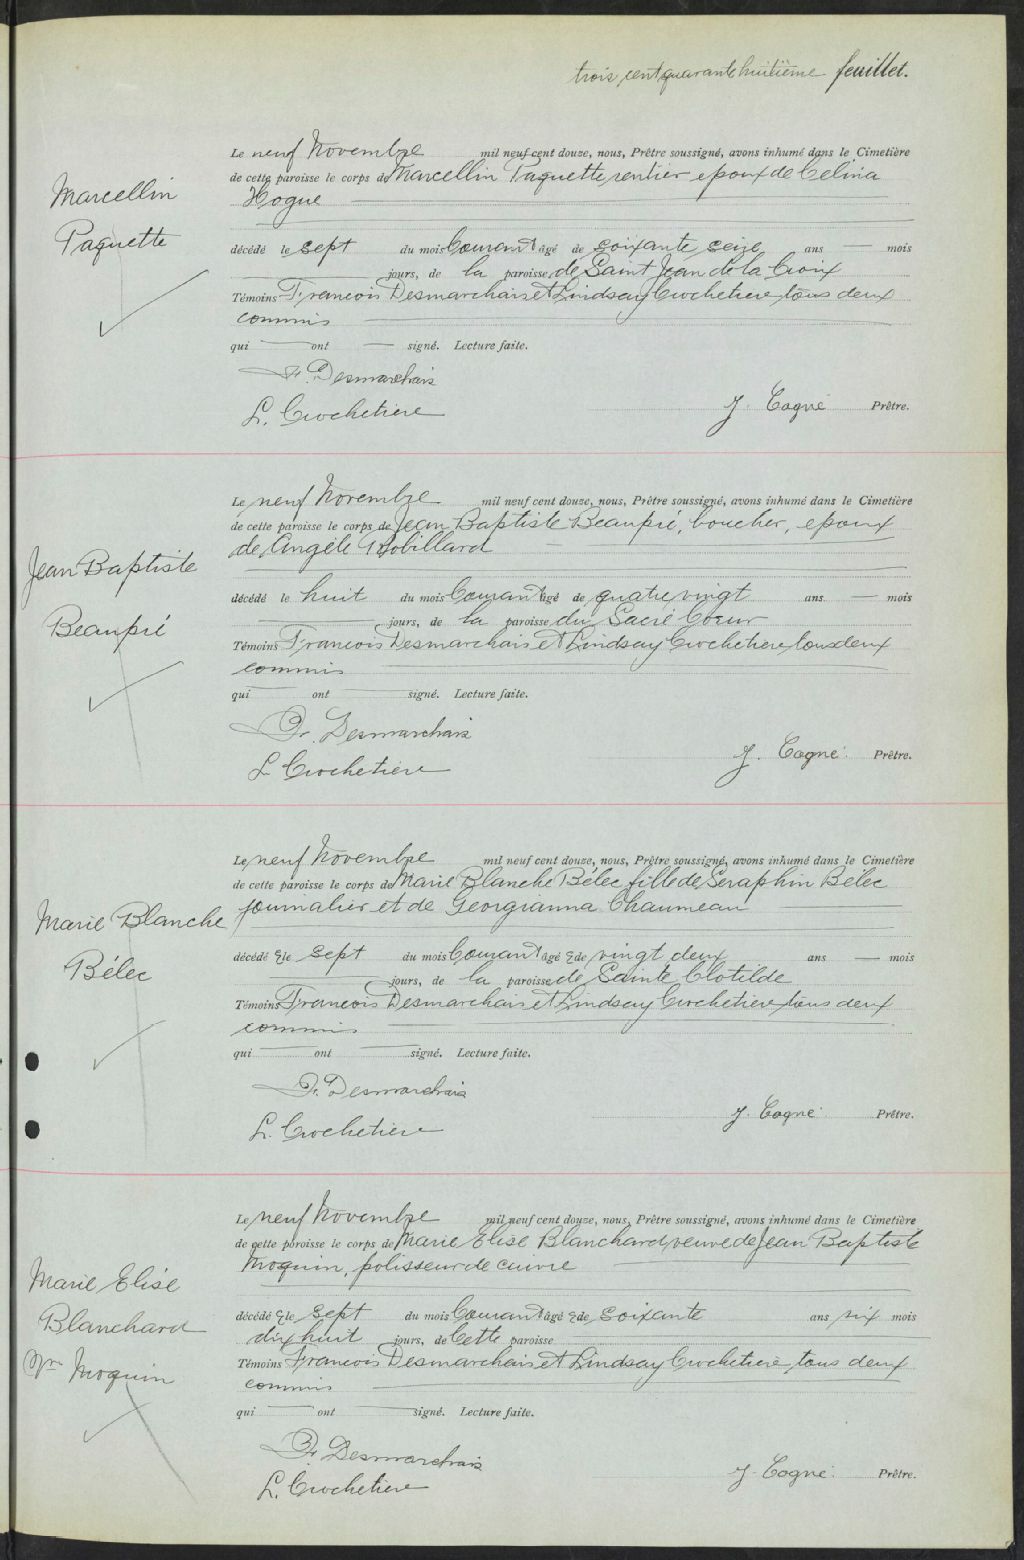 trois cent quarante huitième feuillet.
Marcellin
Paquette
Le neuf Novembre mil neuf cent douze, nous, Prêtre soussigné, avons inhumé dans le Cimetière
de cette paroisse le corps de Marcellin Paquette rentier epoux de Celina
Hogue
décédé le sept du mois Courant âgé de soixante seize ans — mois
jours, de la paroisse de Saint Jean de la Croix
Témoins Francois Desmarchais et Lindsay Crochetiere tous deux
commis
qui — ont — signé. Lecture faite.
F. Desmarchais
L. Crochetiere
J. Cogné Prêtre.
Jean Baptiste
Beaupré
Le neuf Novembre mil neuf cent douze, nous, Prêtre soussigné, avons inhumé dans le Cimetière
de cette paroisse le corps de Jean Baptiste Beaupré, boucher, epoux
de Angéle Robillard
décédé le huit du mois Courant âgé de quatre vingt ans — mois
jours, de la paroisse du Sacré Coeur
Témoins Francois Desmarchais et Lindsay Crochetiere tous deux
commis
qui — ont — signé. Lecture faite.
Fr. Desmarchais
L Crochetière
J. Cogné Prêtre.
Marie Blanche
Bélec
Le neuf Novembre mil neuf cent douze, nous, Prêtre soussigné, avons inhumé dans le Cimetière
de cette paroisse le corps de Marie Blanche Bélec fille de Seraphin Bélec
journalier et de Georgianna Chaumeau
décédé e le sept du mois Courant âgé e de vingt deux ans — mois
jours, de la paroisse de Sainte Clotilde
Témoins Francois Desmarchais et Lindsay Crochetiere tous deux
commis
qui — ont — signé. Lecture faite.
Fr. Desmarchais
L. Crochetiere
J. Cogné Prêtre.
Marie Elise
Blanchard
Vve Moquin
Le neuf Novembre mil neuf cent douze, nous, Prêtre soussigné, avons inhumé dans le Cimetière
de cette paroisse le corps de Marie Elise Blanchard veuve de Jean Baptiste
Moquin, polisseur de cuivre
décédé e le sept du mois Courant âgé e de soixante ans six mois
dix huit jours, de Cette paroisse
Témoins Francois Desmarchais et Lindsay Crochetiere tous deux
commis
qui — ont — signé. Lecture faite.
Fr. Desmarchais
L. Crochetiere
J. Cogné Prêtre.